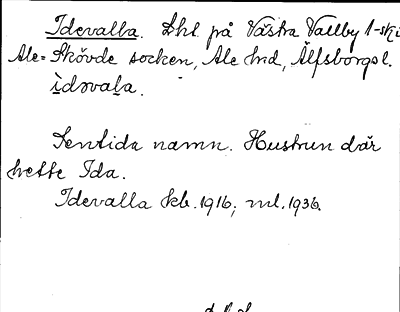 Idevalla. Lht. på Västra Vallby 1-sk i
Ale-Skövde socken, Ale hd, Älfsborgs l.
ìdəvaḷa.
Sentida namn. Hustrun där
hette Ida.
Idevalla kb. 1916; ml. 1936.